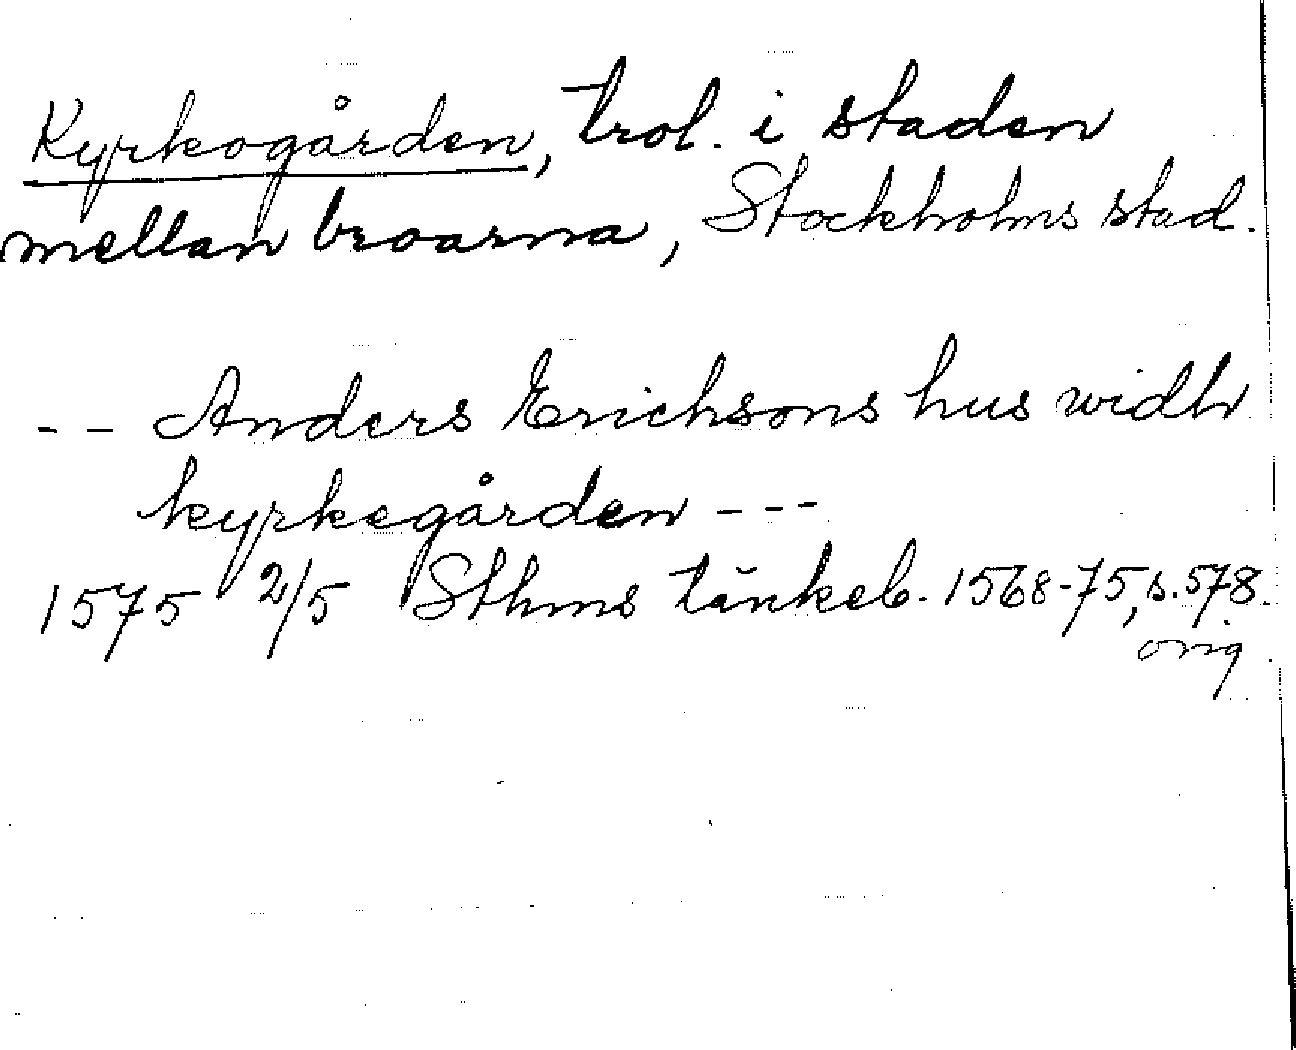 Kyrkogården, trol. i staden
mellan broarna, Stockholms stad.
-- Anders Erichsons hus widh
kyrkegården ---
1575 2/5 Sthms tänkeb. 1568-75, s. 578.
orig.